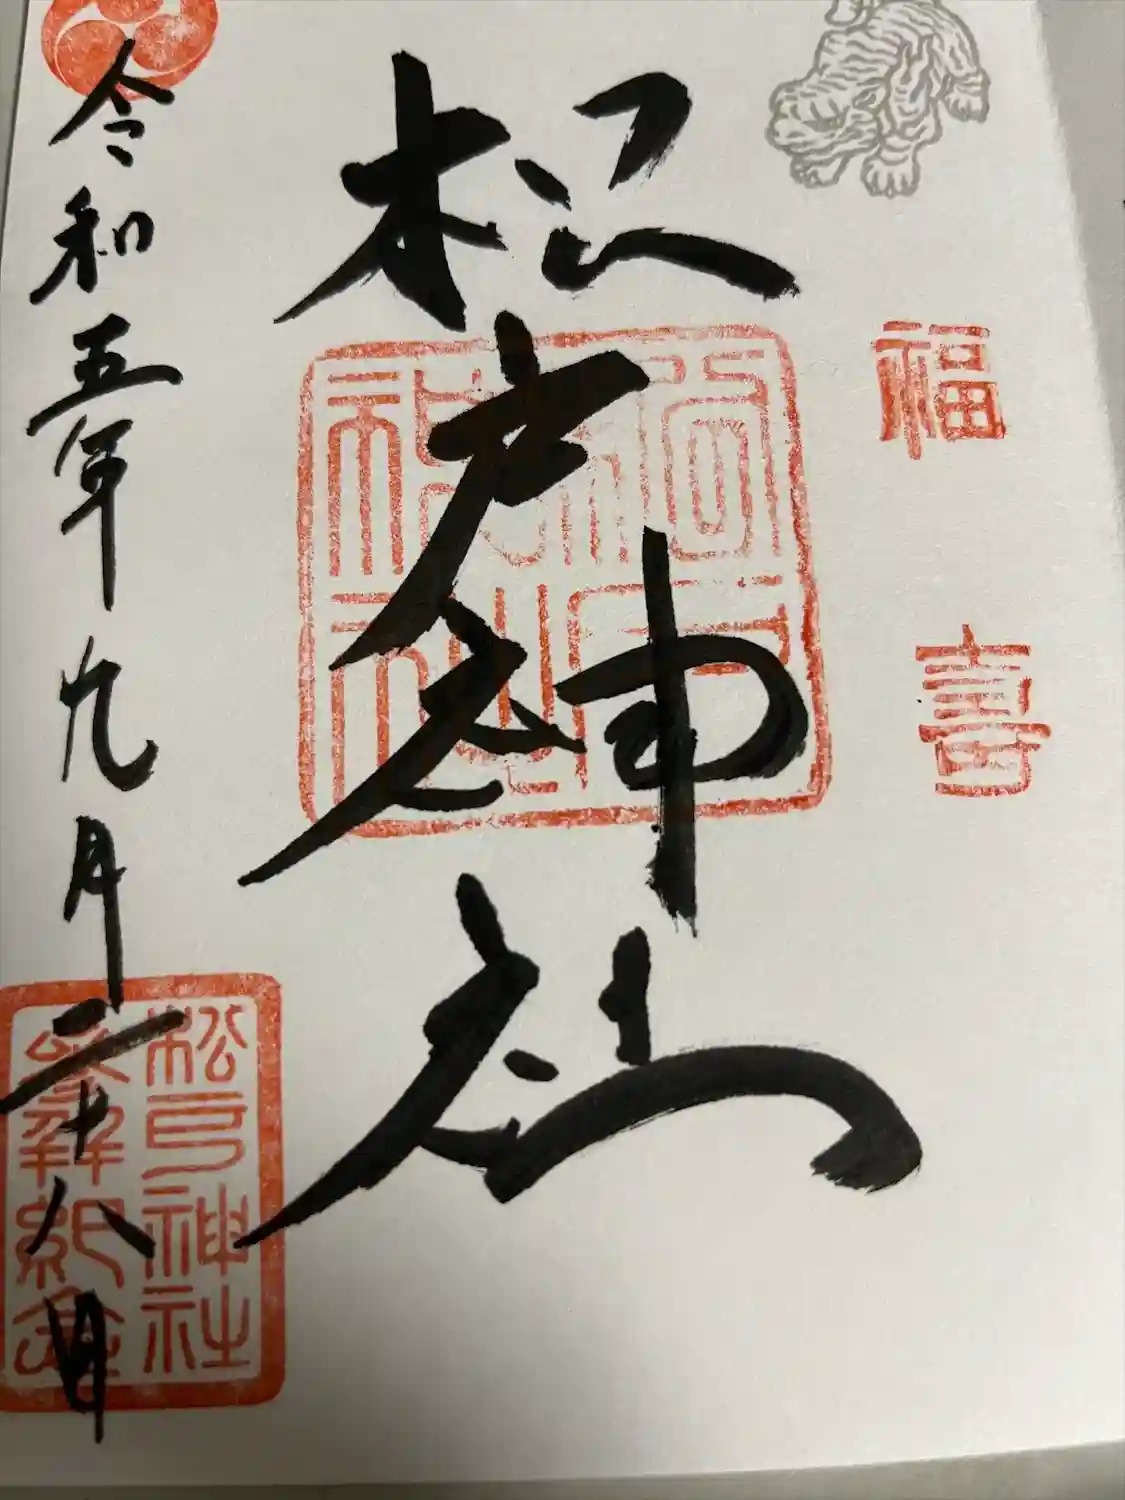 福喜
松戸神社
松戸神社参拝紀念
令和五年九月二十八日